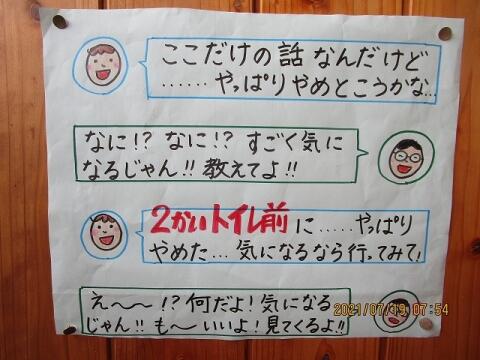 ここだけの話 なんだけど
…… やっぱりやめとこうかな…
なに!? なに!? すごく気に
なるじゃん!! 教えてよ!!
2かいトイレ前に ……やっぱり
やめた… 気になるなら行ってみて!
え〜〜!? 何だよ! 気になる
じゃん!! も〜いいよ! 見てくるよ!!
2021/07/19 07:54